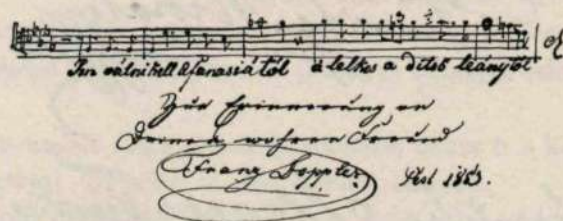 válni kell Afanasiától a lelkes a ditsö leánytól
Zur Erinnerung an
Deinen wahren Freund
Franz Doppler. Pest